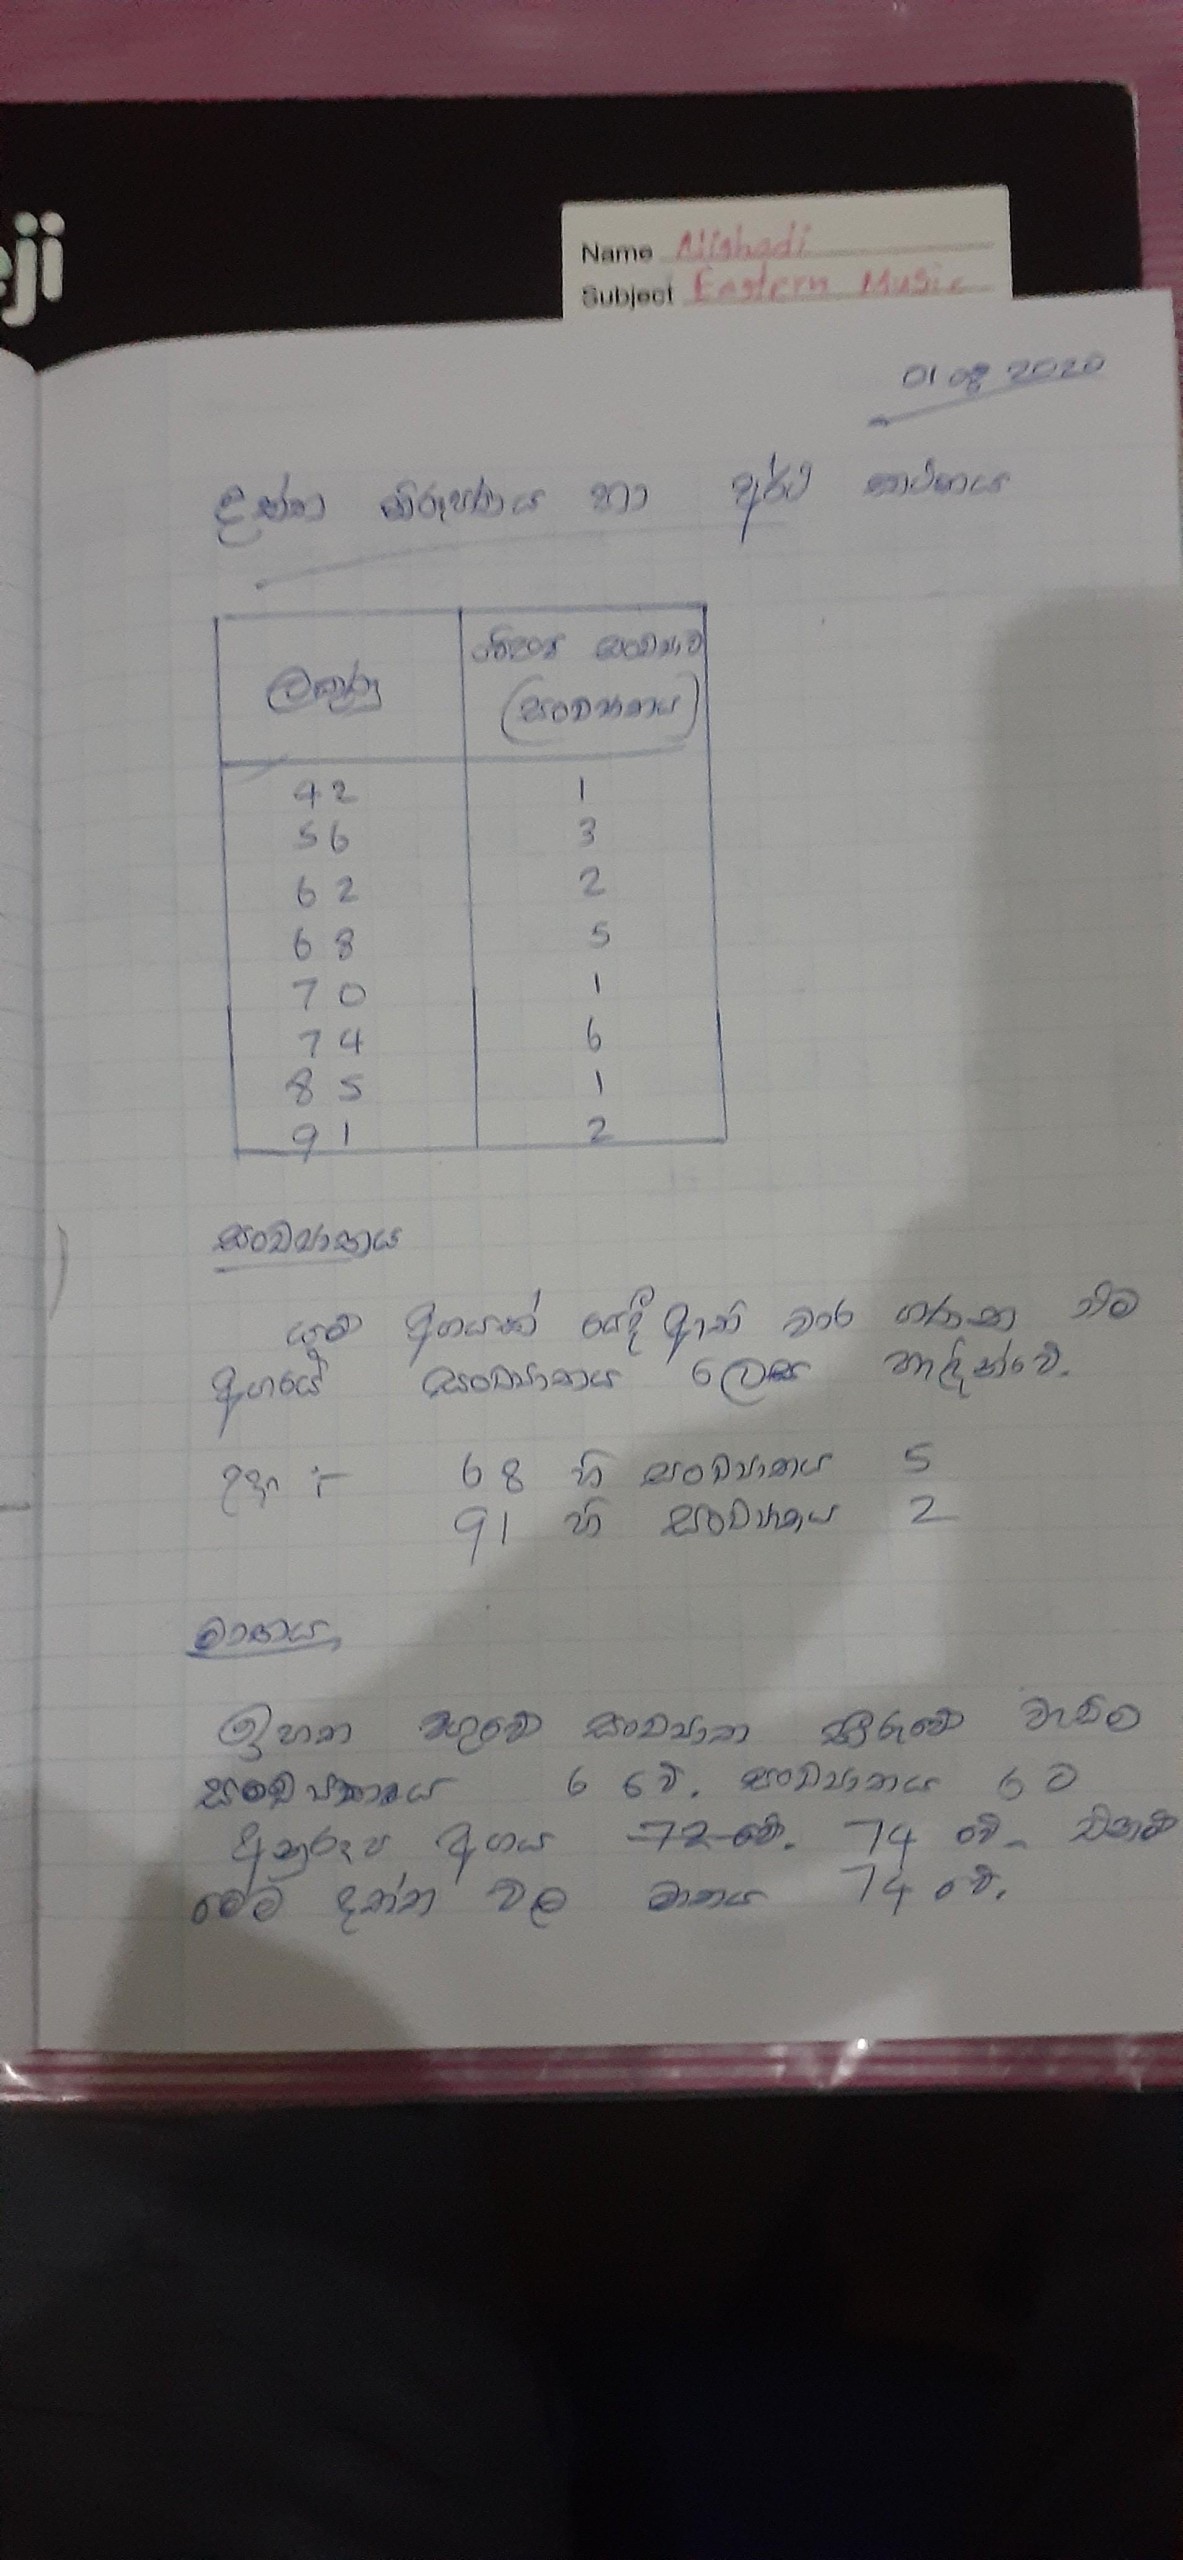 eji
Name Nishadi
Subject Eastern Music
01 08 2020
දත්ත නිරූපණය හා අර්ථ කථනය
ලකුණු
සිසුන් සංඛ්‍යාව
(සංඛ්‍යාතය)
42 1
56 3
62 2
68 5
70 1
74 6
85 1
91 2
සංඛ්‍යාතය
යම් අගයක් යෙදී ඇති වාර ගණන එම
අගයේ සංඛ්‍යාතය ලෙස හැඳින්වේ.
උදා :- 68 හි සංඛ්‍යාතය 5
91 හි සංඛ්‍යාතය 2
මාතය
ඉහත වගුවේ සංඛ්‍යාත තීරුවේ වැඩිම
සංඛ්‍යාතය 6 වේ. සංඛ්‍යාතය 6 ට
අනුරූප අගය 72 වේ. 74 වේ. එනම්
මෙම දත්ත වල මාතය 74 වේ.